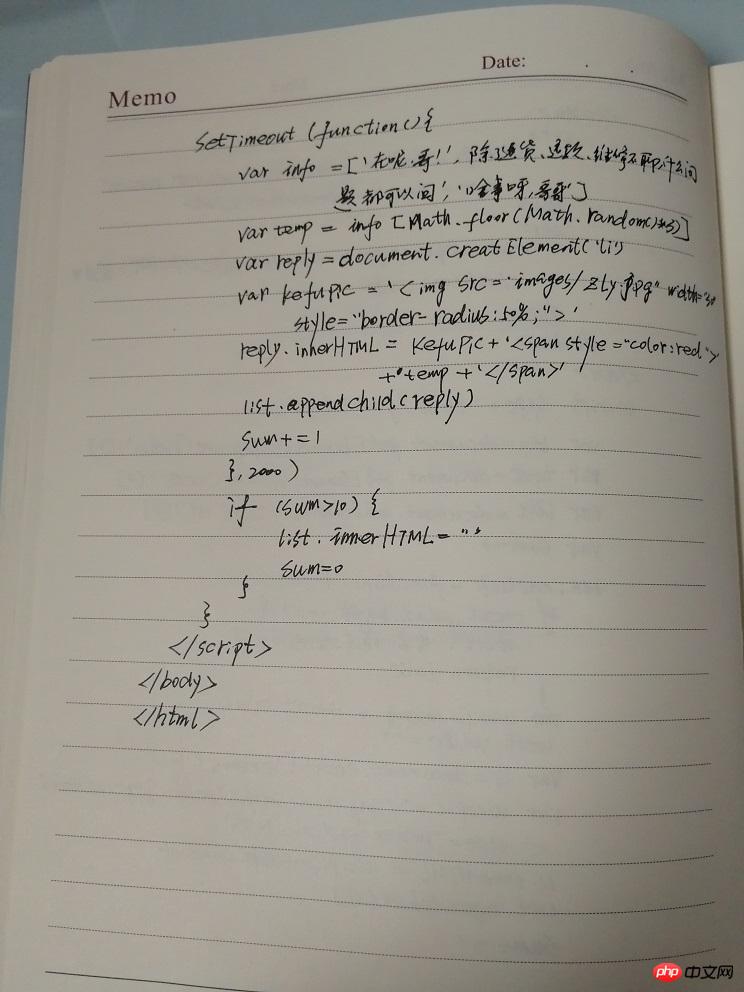 Memo
Date:
setTimeout (function(){
var info = ['在呢.哥!', 除了退货、退款、维修不聊,什么问
题都可以问', '啥事呀,哥哥']
var temp = info [Math.floor(Math.random()*3)]
var reply = document.creatElement('li')
var kefuPic = '<img src = "images/zly.jpg" width="30
style="border-radius:50%;">'
reply.innerHTML = kefuPic + '<span style="color:red">
+ temp + '</span>'
list.appendchild(reply)
sum+=1
},2000)
if (sum>10) {
list.innerHTML = ""
sum=0
}
}
</script>
</body>
</html>
php 中文网